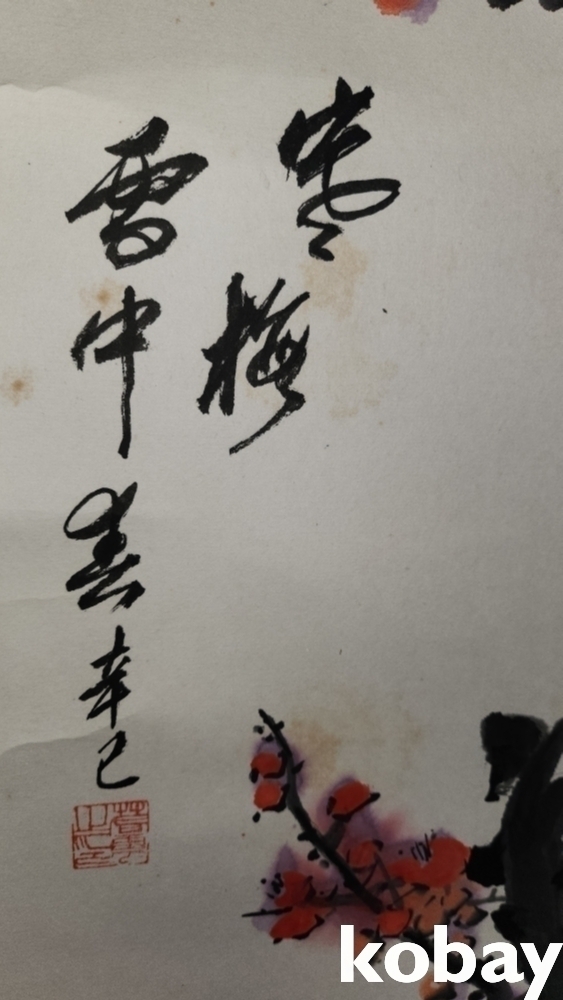 寒
梅
雪中春 辛巳
kobay